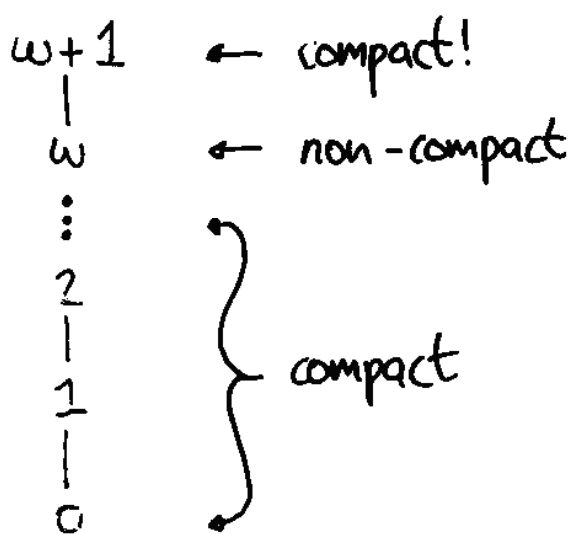 ω+1 ← compact!
ω ← non-compact
⋮
2
1 compact
0